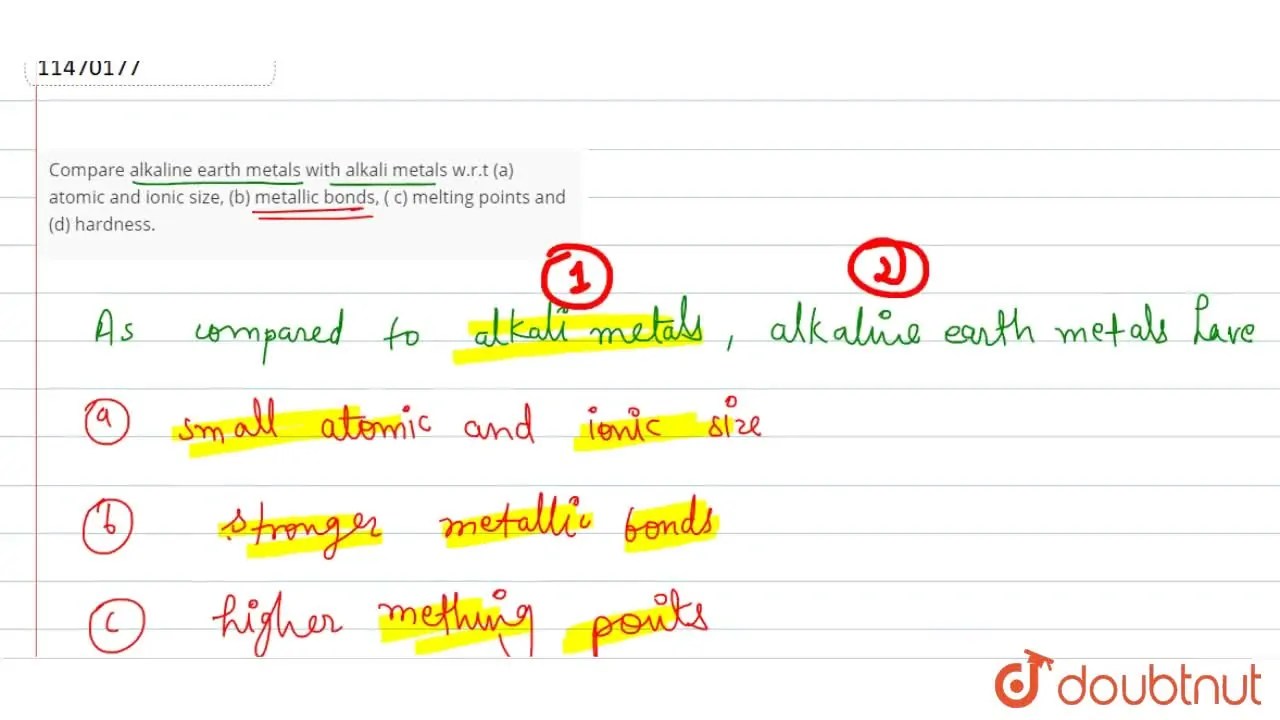 11470177
Compare alkaline earth metals with alkali metals w.r.t (a)
atomic and ionic size, (b) metallic bonds, ( c) melting points and
(d) hardness.
1 2
As compared to alkali metals, alkaline earth metals have
a small atomic and ionic size
b stronger metallic bonds
c higher mething points
doubtnut